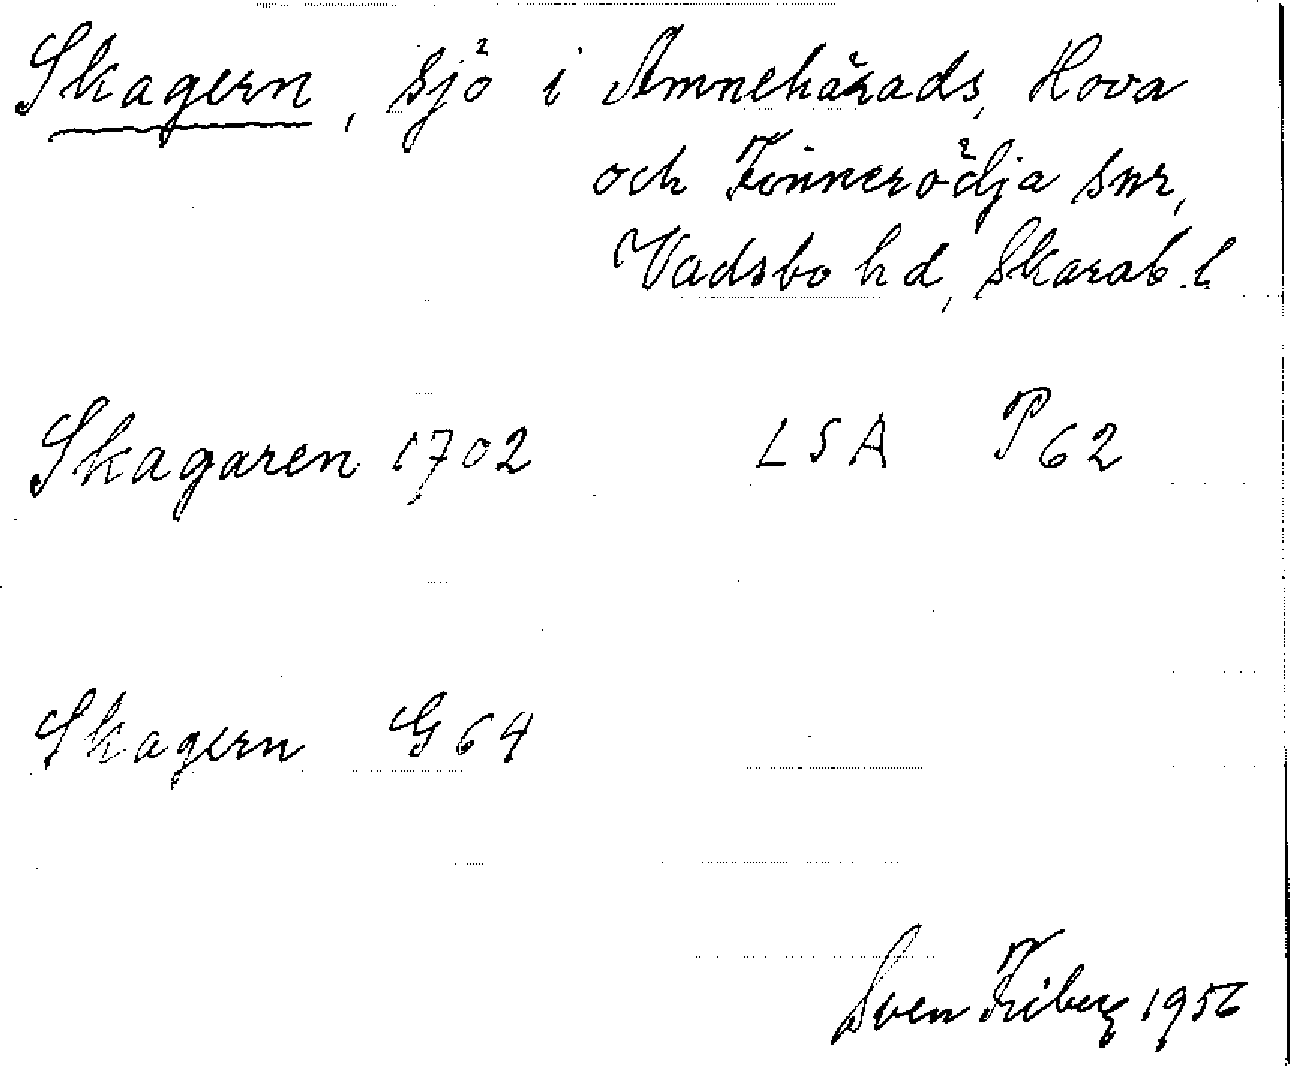 Skagern, sjö i Amnehärads, Hova
och Finnerödja snr,
Vadsbo hd, Skarab. l
Skagaren 1702 LSA P 62
Skagern G 64
Sven Friberg 1956